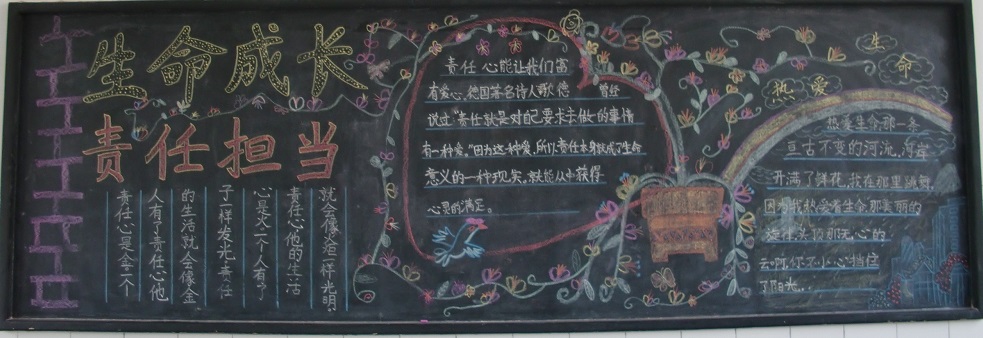 生命成长
责任担当
责任心是金一个
人有了责任心他
的生活就会像金
子一样发光,责任
心是火一个人有了
责任心他的生活
就会像焰一样光明.
责任 心能让我们富
有爱心,德国著名诗人歌德 曾经
说过"责任就是对自己要求去做的事情
有一种爱."因为这种爱,所以责任本身就成了生命
意义的一种现实,就能从中获得
心灵的满足。
热爱生命
热爱生命那一条
亘古不变的河流,河岸
开满了鲜花,我在那里跳舞
因为我热爱着生命,那美丽的
旋律头顶那无心的
云啊,你不小心挡住
了阳光...